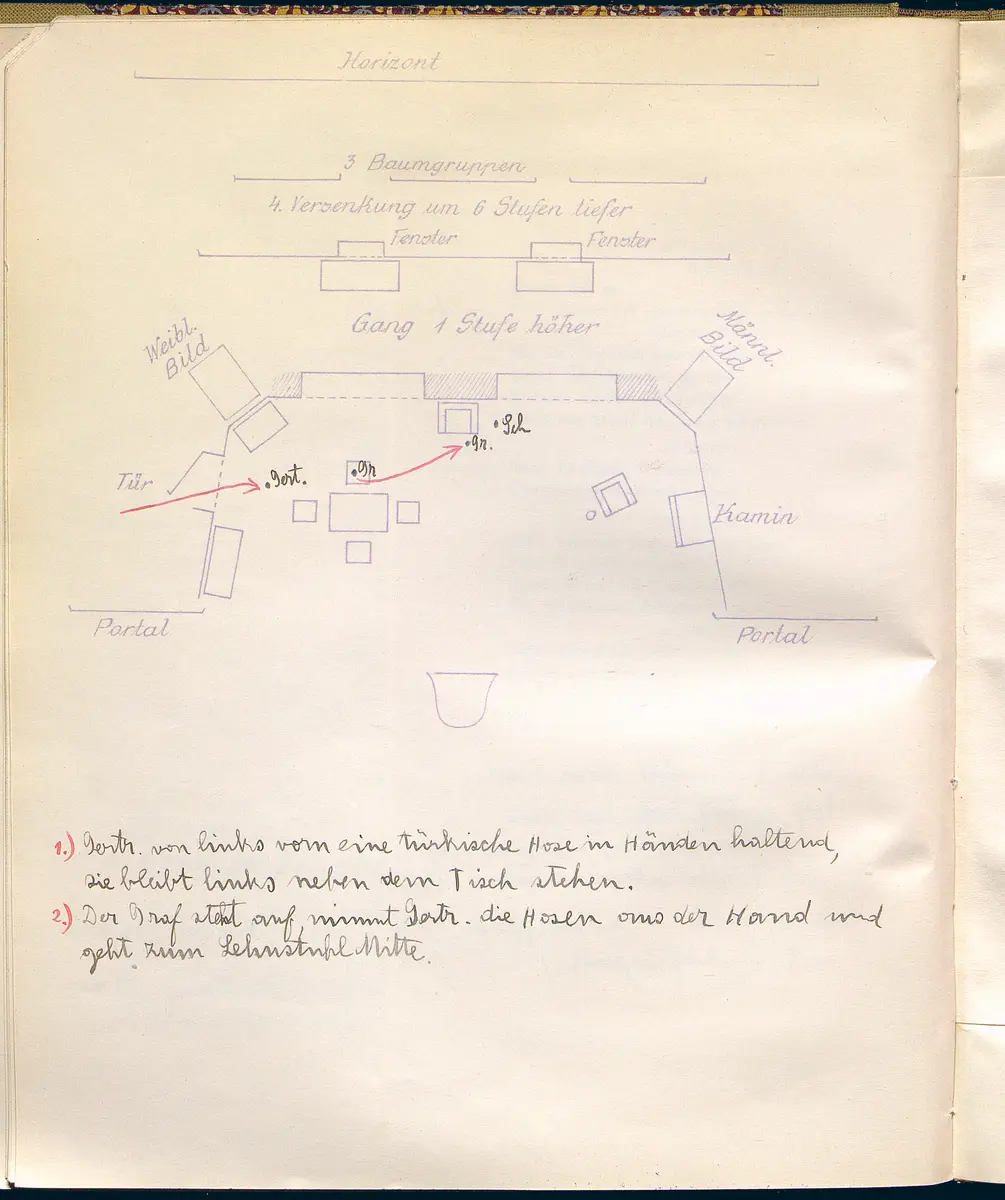 Horizont
3 Baumgruppen
4. Versenkung um 6 Stufen tiefer
Fenster
Fenster
Gang 1 Stufe höher
Weibl.
Bild
Männl.
Bild
Sch
Gr.
Tür
Gert.
Gr
Kamin
Portal
Portal
1.) Gertr. von links vorn eine türkische Hose in Händen haltend,
sie bleibt links neben dem Tisch stehen.
2.) Der Graf steht auf, nimmt Gertr. die Hosen aus der Hand und
geht zum Lehnstuhl Mitte.